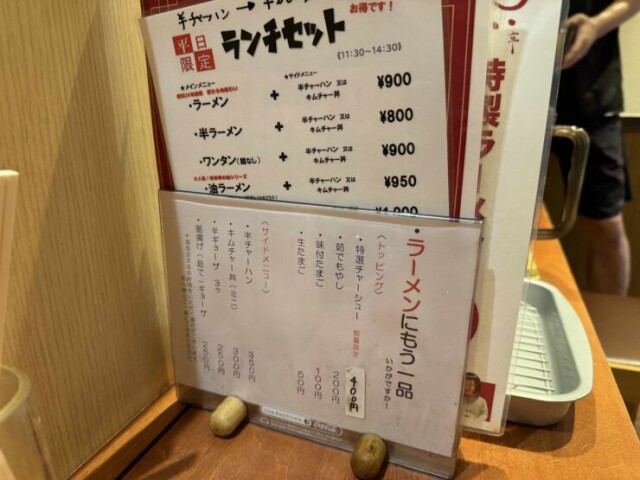 半チャーハン →
お得です!
平日限定
ランチセット
《11:30~14:30》
★メインメニュー
★サイドメニュー
・ラーメン + 半チャーハン 又は キムチャー丼 ¥900
・半ラーメン + 半チャーハン 又は キムチャー丼 ¥800
・ワンタン(麺なし) + 半チャーハン 又は キムチャー丼 ¥900
・油ラーメン + 半チャーハン 又は キムチャー丼 ¥950
特製ラーメ
・ラーメンにもう一品
いかがですか!
〈トッピング〉
・特選チャーシュー 数量限定 400円
・茹でもやし 200円
・味付たまご 100円
・生たまご 50円
〈サイドメニュー〉
・半チャーハン 350円
・キムチャー丼(ミニ) 300円
・半ギョーザ 3ヶ 250円
・釜揚げ(茹で)ギョーザ